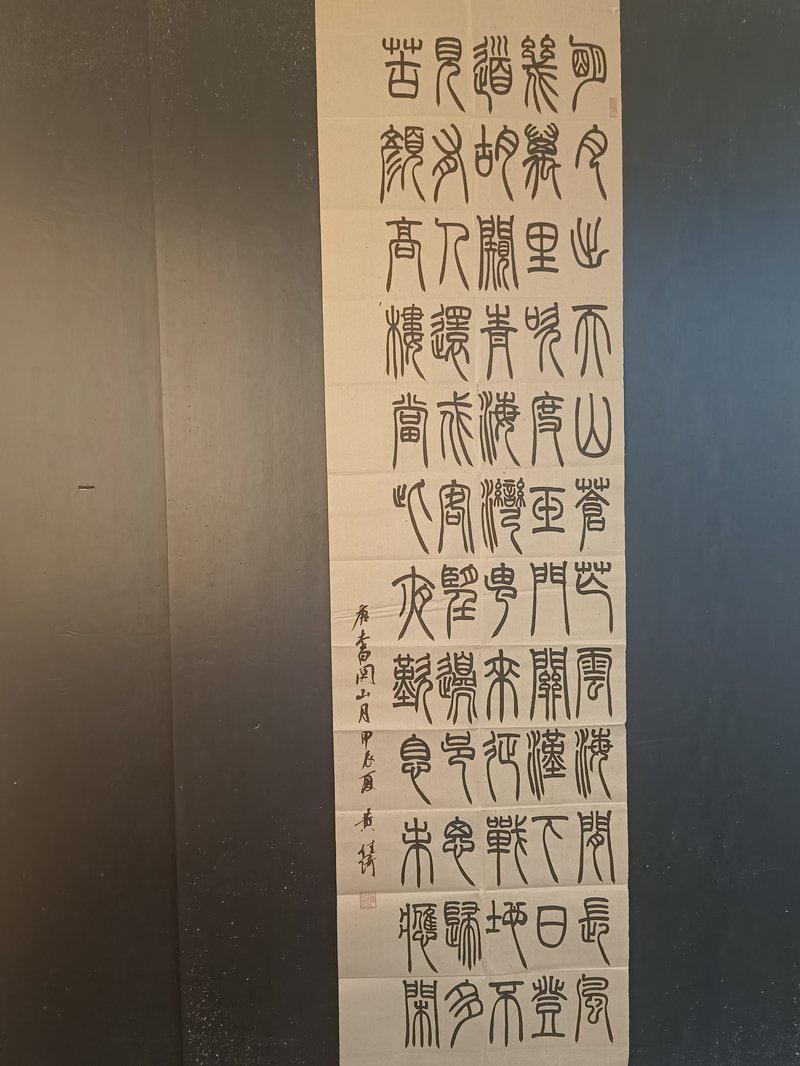 明月出天山蒼茫雲海間長風
幾萬里吹度玉門關漢下白登
道胡闚青海灣由來征戰地不
見有人還戍客望邊邑思歸多
苦顏高樓當此夜歎息未應閑
唐李白关山月甲辰夏 黄